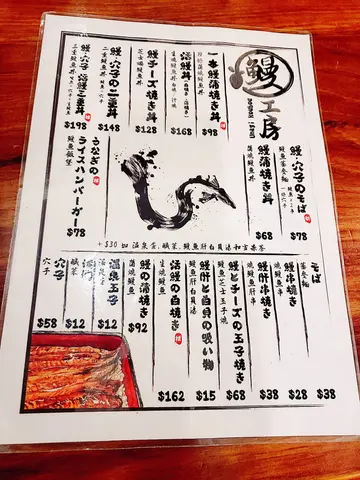 鰻
工房
一本鰻蒲焼き丼
原條蒲燒鰻魚丼
$98
活鰻丼
$168
鰻チーズ焼き丼
芝士燒鰻魚丼
$128
鰻・穴子の二重丼
二重鰻魚丼
$148
鰻・穴子・活鰻三重丼
三重鰻魚丼
$198
鰻・穴子のそば
$78
鰻蒲焼き丼
蒲燒鰻魚丼
$68
うなぎの
ライスハンバーガー
鰻魚飯堡
$78
+$30 加 溫泉蛋, 鹹菜, 鰻魚肝白貝湯和玄米茶
そば
$38
鰻串焼き
燒鰻魚串
$28
鰻肝串焼き
燒鰻魚肝串
$38
鰻とチーズの玉子焼き
鰻魚芝士玉子燒
$68
鰻肝と白貝の吸い物
鰻魚肝白貝湯
$15
活鰻の白焼き
生燒鰻魚
$162
鰻の蒲焼き
蒲燒鰻魚
$92
温泉玉子
溫泉蛋
$12
鹹菜
$12
穴子
穴子
$58